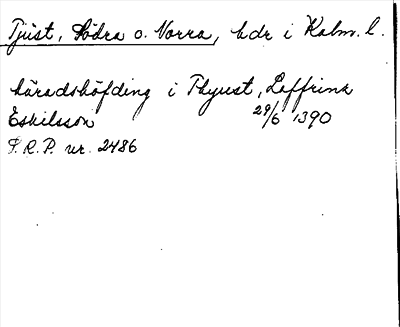 Tjust, Södra o. Norra, hdr i Kalm. l.
häradshöfding i Thyust, Laffrink
Eskilsson 29/6 1390
S.R.P. nr. 2486